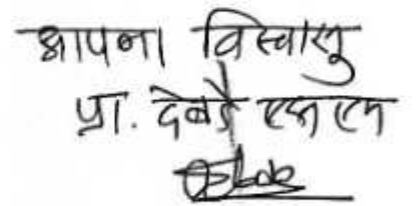 आपला विश्वासु
प्रा. देवडे एम एम